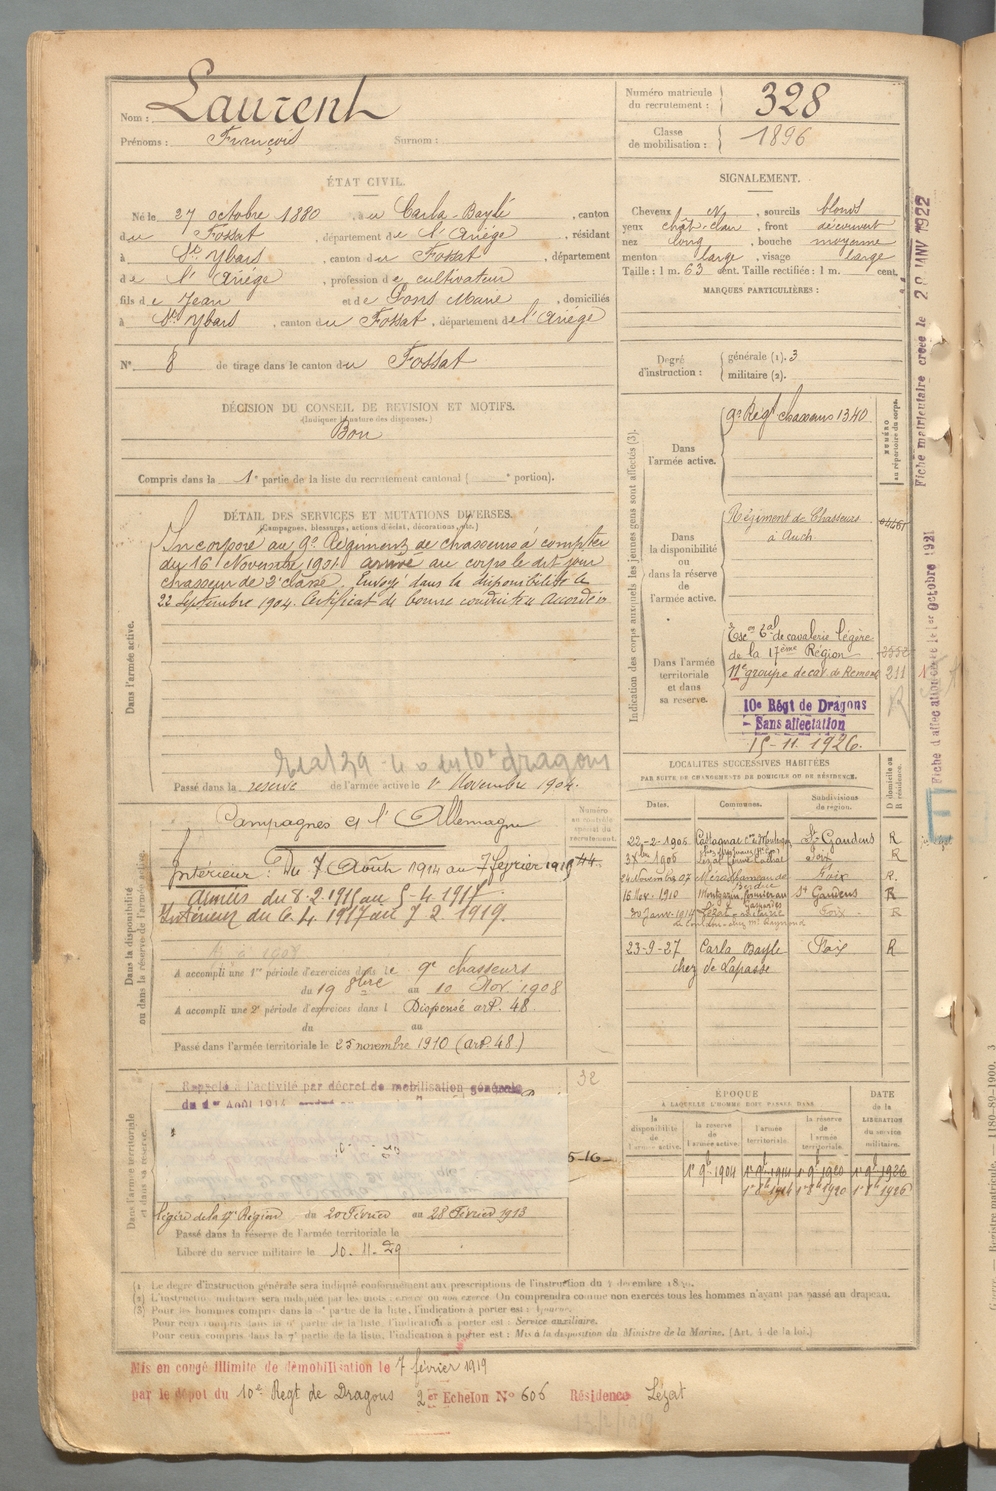 Nom : Laurent
Prénoms : François Surnom :
Numéro matricule du recrutement : 328
Classe de mobilisation : 1896
ÉTAT CIVIL.
Né le 27 octobre 1880, à u Carla-Bayle, canton
du Fossat, département de l'Ariége, résidant
à St Ybars, canton du Fossat, département
de l'Ariége, profession de cultivateur
fils de Jean et de Pons Marie, domiciliés
à St Ybars, canton du Fossat, département de l'Ariège
N° 8 de tirage dans le canton du Fossat
SIGNALEMENT.
Cheveux N, sourcils blonds
yeux chât. clair, front découvert
nez long, bouche moyenne
menton large, visage large
Taille : 1 m. 63 cent. Taille rectifiée : 1 m. cent.
MARQUES PARTICULIÈRES :
Degré d'instruction : générale (1). 3
militaire (2).
DÉCISION DU CONSEIL DE REVISION ET MOTIFS.
(Indiquer la nature des dispenses.)
Bon
Compris dans la 1e partie de la liste du recrutement cantonal ( e portion).
DÉTAIL DES SERVICES ET MUTATIONS DIVERSES.
(Campagnes, blessures, actions d'éclat, décorations, etc.)
Dans l'armée active.
Incorporé au 9e Régiment de chasseurs à compter
du 16 Novembre 1901 arrivé au corps le dit jour
chasseur de 2e classe. Envoyé dans la disponibilité le
22 Septembre 1904. Certificat de bonne conduite accordé
dragons
Passé dans la réserve de l'armée active le 1r Novembre 1904.
Indication des corps auxquels les jeunes gens sont affectés (3).
NUMÉRO au répertoire du corps.
Dans l'armée active.
9e Régt chasseurs 1340
Dans la disponibilité ou dans la réserve de l'armée active.
Régiment de Chasseurs
à Auch
Dans l'armée territoriale et dans sa réserve.
Esc on Tal de cavalerie légère
de la 17ème Région
11e groupe de cav. de Remont 211
R
10e Régt de Dragons
- Sans affectation
15-11.1926.
Fiche matriculaire créée le 28 JANV 1922
Fiche d'affectation créée le 1er Octobre 1921
LOCALITÉS SUCCESSIVES HABITÉES
PAR SUITE DE CHANGEMENTS DE DOMICILE OU DE RÉSIDENCE.
Dates. Communes. Subdivisions de région. D domicile ou R résidence.
22-2-1906 Castagnac St Gaudens R
1906 Lézat Foix R
24 Novembre 07 Foix R.
15 Nov. 1910 St Gaudens R
30 Janv. 1914 Lézat Foix R
23-9-27 Carla Bayle Foix R
chez de Lapasse
Dans la disponibilité ou dans la réserve de l'armée active.
Numéro au contrôle spécial du recrutement.
Campagnes c/ l'Allemagne
Intérieur : Du 7 Août 1914 au 7 février 1915
Armées du 8-2-1915 au 5-4-1917
Intérieur du 6.4.1917 au 7 2 1919
A accompli une 1re période d'exercices dans le 9e chasseurs
du 19 8bre au 10 Nov. 1908
A accompli une 2e période d'exercices dans l Dispensé art. 48
du au
Passé dans l'armée territoriale le 25 novembre 1910 (art. 48)
Dans l'armée territoriale et dans sa réserve.
Rappelé à l'activité par décret de mobilisation générale
du 1er Août 1914
32
5-16-
légère de la 17e Région du 20 Février au 28 Février 1913
Passé dans la réserve de l'armée territoriale le
Libéré du service militaire le 10. 11. 29
ÉPOQUE
À LAQUELLE L'HOMME DOIT PASSER DANS
la disponibilité de l'armée active.
la réserve de l'armée active.
l'armée territoriale.
la réserve de l'armée territoriale.
DATE de la LIBÉRATION du service militaire.
1r 9b 1904 1r 9b 1914 1r 9b 1920 1r 9b 1926
1r 8b 1914 1r 8b 1920 1r 8b 1926
(1) Le degré d'instruction générale sera indiqué conformément aux prescriptions de l'instruction du 4 décembre 1889.
(2) L'instruction militaire sera indiquée par les mots : exercé ou non exercé. On comprendra comme non exercés tous les hommes n'ayant pas passé au drapeau.
(3) Pour les hommes compris dans la 4e partie de la liste, l'indication à porter est : Ajourné.
Pour ceux compris dans la 6e partie de la liste, l'indication à porter est : Service auxiliaire.
Pour ceux compris dans la 7e partie de la liste, l'indication à porter est : Mis à la disposition du Ministre de la Marine. (Art. 4 de la loi.)
Mis en congé illimité de démobilisation le 7 février 1919
par le dépôt du 10e Regt de Dragons 2e Echelon N° 606 Résidence Lézat